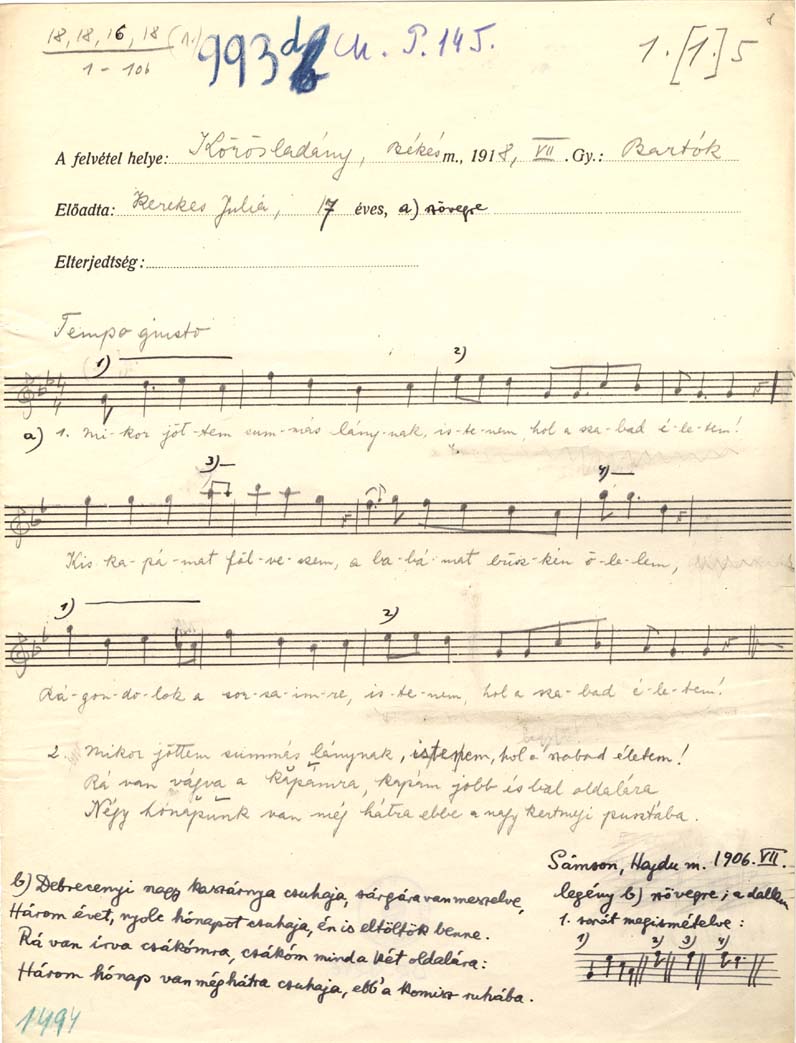 8
18, 18, 16, 18 (1.)
1 - 10b
993 d M. P. 145.
1. [1.] 5
A felvétel helye: Körösladány, Békés m., 1918, VII. Gy.: Bartók
Előadta: Kerekes Julia, 17 éves, a) szövegre
Elterjedtség:
Tempo giusto
1) 2)
a) 1. Mi-kor jöt-tem sum-más lány-nak, is-te-nem, hol a sza-bad é-le-tem!
3) 4)
Kis ka-pá-mat föl-ve-szem, a ba-bá-mat büsz-kén ö-le-lem,
1) 2)
Rá-gon-do-lok a sor-sa-im-re, is-te-nem, hol a sza-bad é-le-tem!
2. Mikor jöttem summás lánynak, istenem, hol a szabad életem!
Rá van vágva a kapámra, kapám jobb és bal oldalára
Négy hónapunk van még hátra ebbe a nagy kertmegi pusztába.
Sámson, Hajdu m. 1906. VII.
legény b) szövegre; a dallam
1. sorát megismételve:
1) 2) 3) 4)
b) Debrecenyi nagy kaszárnya csuhaja, sárgára van meszelve,
Három évet, nyolc hónapot csuhaja, én is eltöltök benne.
Rá van írva csákómra, csákóm mind a két oldalára:
Három hónap van még hátra csuhaja, ebb'a komisz ruhába.
1494